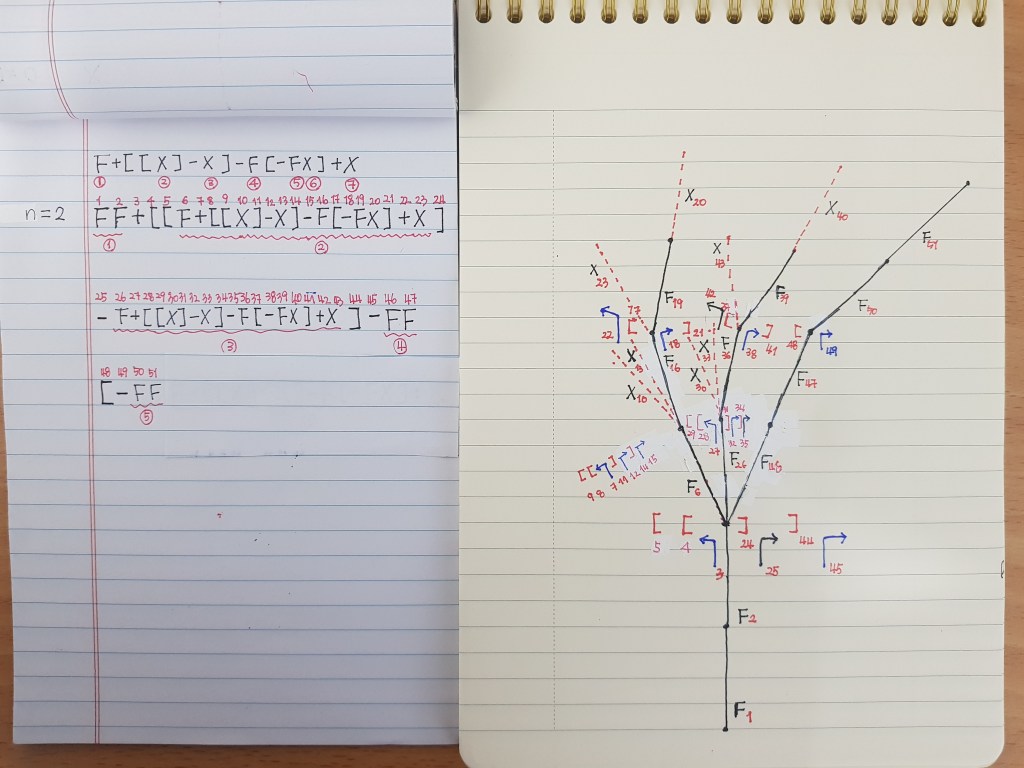 F+[[X]-X]-F[-FX]+X
① ② ③ ④ ⑤ ⑥ ⑦
1 2 3 4 5 6 7 8 9 10 11 12 13 14 15 16 17 18 19 20 21 22 23 24
n=2 FF+[[F+[[X]-X]-F[-FX]+X]
① ②
25 26 27 28 29 30 31 32 33 34 35 36 37 38 39 40 41 42 43 44 45 46 47
-F+[[X]-X]-F[-FX]+X]-FF
(3) ④
48 49 50 51
[-FF
⑤
X20
X40
F51
X 43
X 23
F50
F19
F39
42
17
22 [
18
]21
F 36
38
]
41
[
48
49
F16
X 33
F47
X10
X 30
[[ ] ]
29 28 27 32 34 35
F26
[[ ] ]
9 8 7 11 12 14 15
F6
[ [ ] ]
5 4 3 24 25 44 45
F2
F1